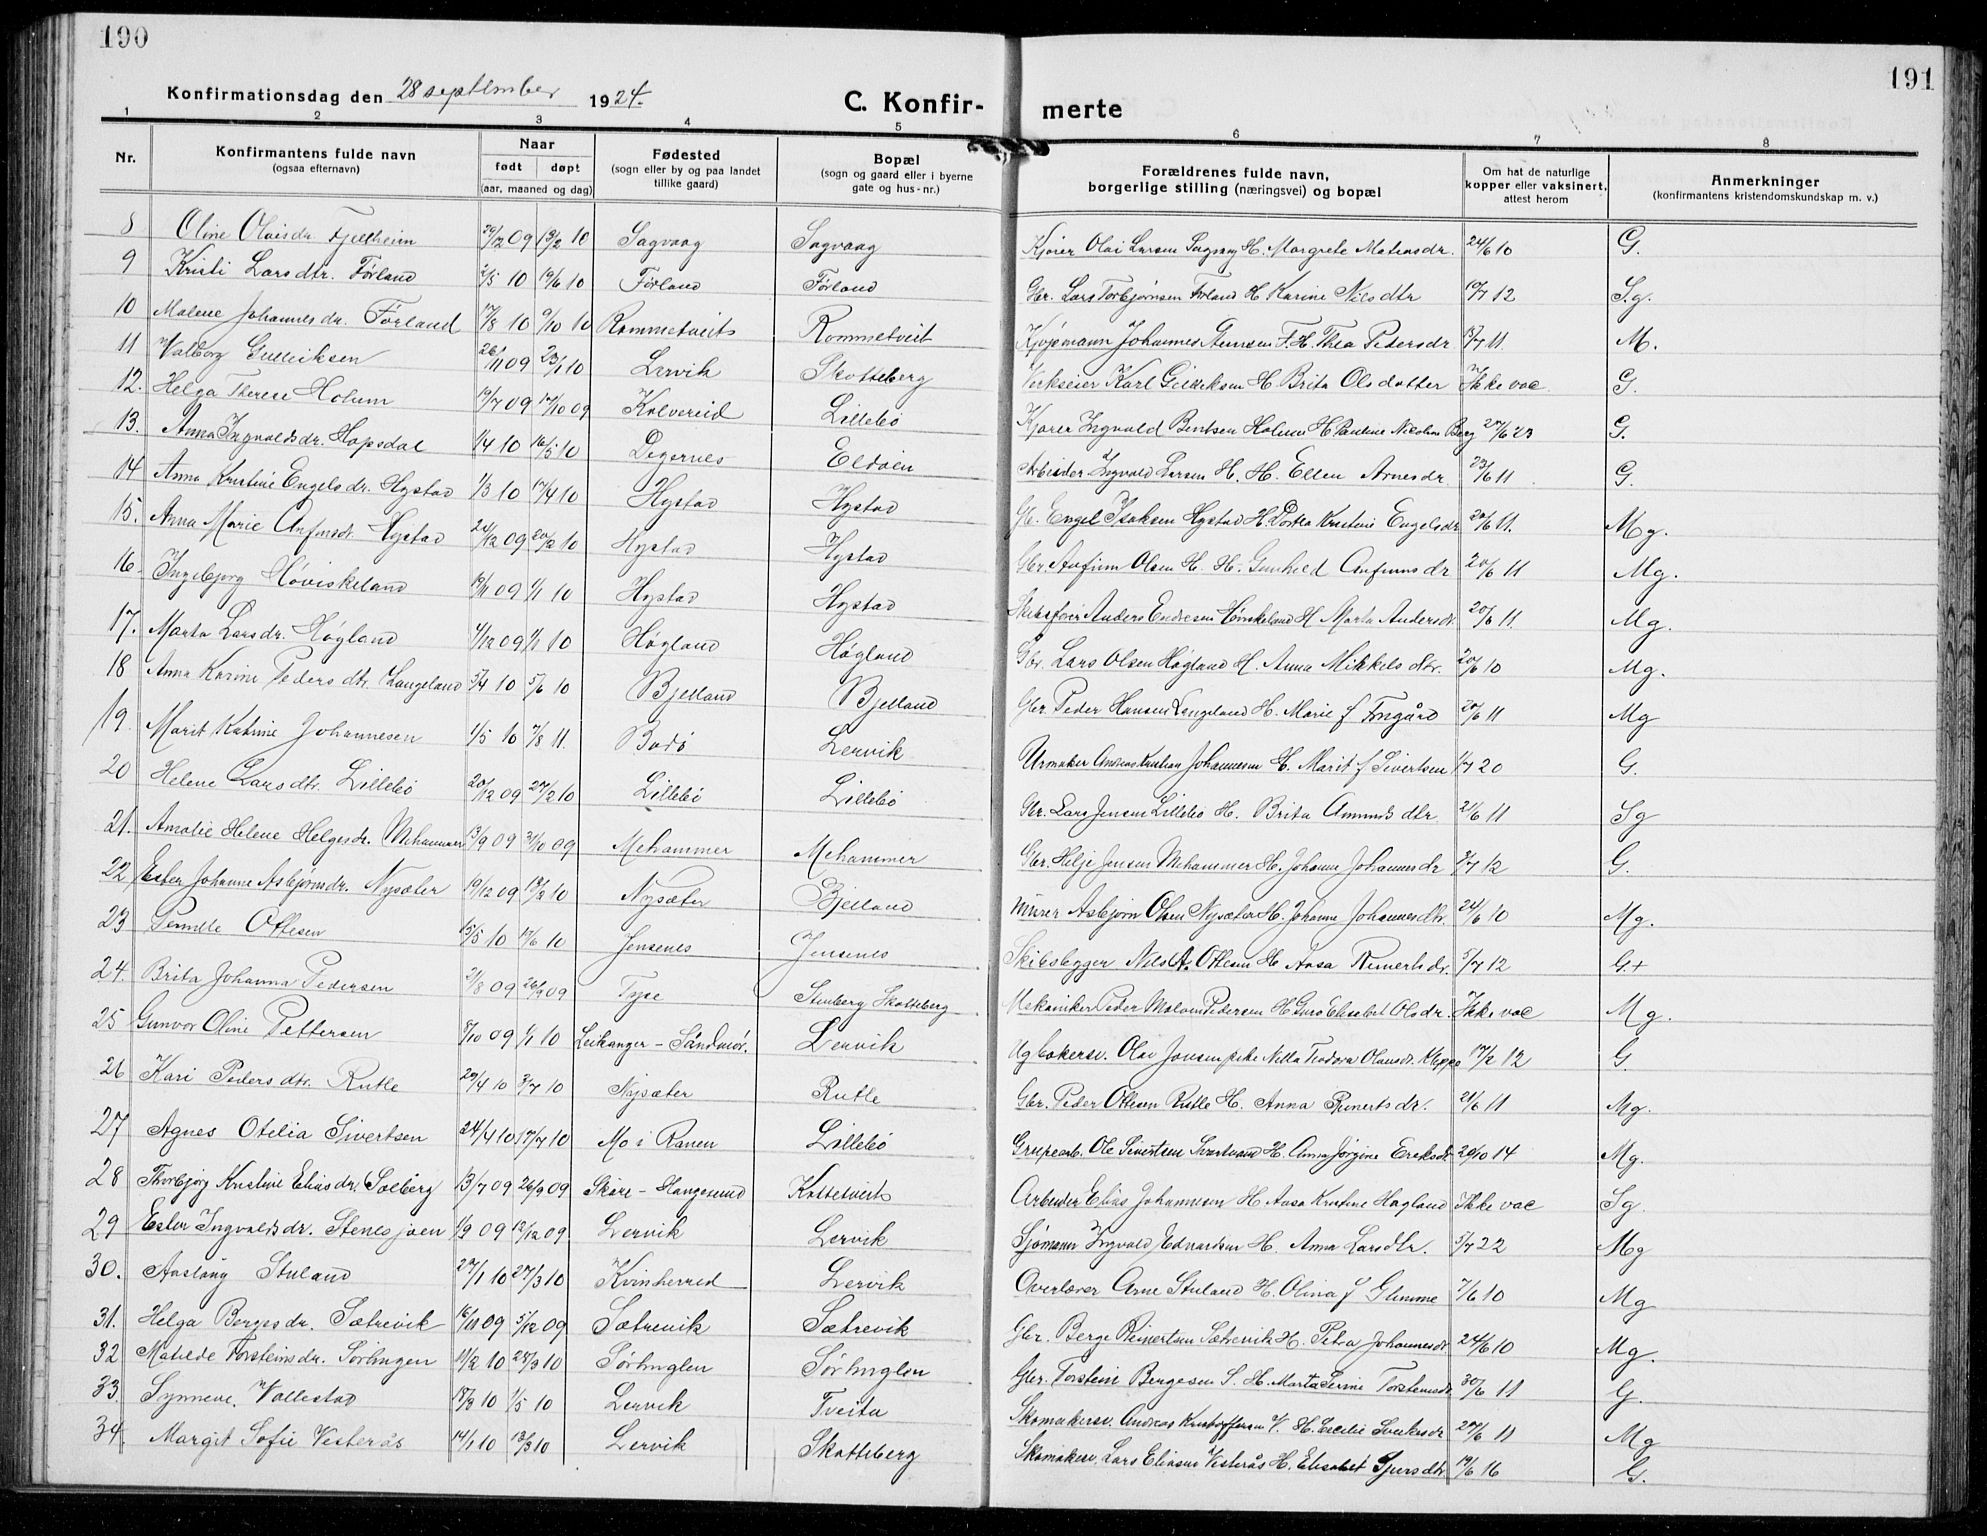 190
191
Konfirmationsdag den 28 september 1924.
C. Konfir-merte
1 2 3 4 5 6 7 8
Nr. Konfirmantens fulde navn (ogsaa efternavn) Naar født døpt (aar, maaned og dag) Fødested (sogn eller by og paa landet tillike gaard) Bopæl (sogn og gaard eller i byerne gate og hus-nr.) Forældrenes fulde navn, borgerlige stilling (næringsvei) og bopæl Om hat de naturlige kopper eller vaksinert, attest herom Anmerkninger (konfirmantens kristendomskundskap m. v.)
8 Oline Olaisdr. Fjellheim 09 13/2 10 Sagvaag Sagvaag Kjører Olai Larsen Sagvaag H. Margrete Matiasdr. 24/6 10 G.
9 Kristi Larsdtr. Førland 2/5 10 19/6 10 Førland Førland Gbr. Lars Torbjørnsen Førland H. Karine Nilsdtr 12 S.g.
10 Malene Johannesdr. Førland 17/8 10 9/10 10 Rommetveit Rommetveit Kjøpmann Johannes F. H. Thea Pedersdr. 13/7 11. M.
11 Valborg Gullriksen 26/11 09 23/1 10 Lervik Skotteberg Verkseier Karl Gullriksen H. Brita Olsdatter Ikke vac. G.
12. Helga Therese Holum 19/7 09 17/10 09 Kolvereid Lillebø Kjører Ingvald Bentsen Holum H. Pauline Nicoline Berg 27/6 23 G.
13. Anna Ingvaldsdr. Hopsdal 1/4 10 16/5 10 Degernes Eldøen Arbeider Ingvald Larsen H. H. Ellen Arnesdr. 23/6 11 G.
14 Anna Kristine Engelsdr. Hystad 1/3 10 17/4 10 Hystad Hystad Gb. Engel Isaksen Hystad H. Dortea Kristine Engelsdr 20/6 11. Mg.
15. Anna Marie Anfinsdr. Hystad 24/12 09 20/2 10 Hystad Hystad Gbr. Anfinn Olsen H. H. Gunhild Anfinnsdr 20/6 11 Mg.
16. Ingebjørg Høviskeland 09 1/1 10 Hystad Hystad Anders Endresen Høviskeland H. Marta Andersdr. 20/6 11. Mg.
17. Marta Larsdr. Høgland 4/12 09 1/1 10 Høgland Høgland Gbr. Lars Olsen Høgland H. Anna Mikkelsdtr. 20/6 10 Mg.
18 Anna Karine Pedersdtr. Langeland 5/4 10 5/6 10 Bjelland Bjelland Gbr. Peder Hansen Langeland H. Marie f. 20/6 11 Mg
19. Marit Katrine Johannesen 1/5 10 7/8 11. Bodö Lervik Urmaker Andreas Kristian Johannesen H. Marit f Sivertsen 1/7 20 G.
20 Helene Larsdtr. Lillebø 20/12 09 27/2 10 Lillebø Lillebø Gbr. Lars Jensen Lillebø H. Brita Amundsdtr. 21/6 11 Sg
21. Amalie Helene Helgesdr. Mehammer 13/9 09 31/10 09 Mehammer Mehammer Gbr. Helje Jensen Mehammer H. Johanne Johannesdr 9/7 12 G.
22 Ester Johanne Asbjørnsdr. Nysæter 19/12 09 13/2 10 Nysæter Bjelland Murer Asbjørn Olsen Nysæter H. Johanne Johannesdtr. 24/6 10 Mg.
23 Pernille Ottesen 15/5 10 17/6 10 Jensenes Jensenes Skibsbygger Nils A. Ottesen H. Aasa Reinertsdr. 5/7 12 G+
24. Brita Johanna Pedersen 21/8 09 26/9 09 Tyse Stenberg Skotteberg Mekaniker Peder Molvin Pedersen H. Guro Elisabet Olsdr. Ikke vac Mg.
25 Gunvor Oline Pettersen 8/10 09 1/1 10 Leikanger - Søndmør. Lervik Ug bokerse. Olav Jensen pike Nella Teodora Olausdr. Kleppe 17/2 12 G.
26 Kari Pedersdtr. Rutle 29/4 10 3/7 10 Nysæter Rutle Gbr. Peder Ottesen Rutle H. Anna Reinertsdr. 21/6 11 Mg.
27 Agnes Otelia Sivertsen 24/4 10 17/7 10 Mo i Ranen Lillebø Grubearb. Ole Sivertsen H. Anna Jørgine Eriksdr 14 Mg.
28 Thorbjørg Kristine Eliasdr. Solberg 13/7 09 26/9 09 Skåre - Haugesund Kattetveit Arbeider Elias Johannesen H. Aasa Kristine Hagland Ikke vac Sg.
29 Ester Ingvaldsdr. Stenesjoen 1/9 09 12/12 09. Lervik Lervik Sjømann Ingvald Edvardsen H. Anna Larsdtr. 5/7 22 Mg
30. Aaslaug Stuland 27/1 10 27/3 10 Kvinherred Lervik Overlærer Arne Stuland H. Olina f Glimme 7/6 10 Mg
31. Helga Bergesdr. Sætrevik 16/11 09 5/12 09 Sætrevik Sætrevik Gbr. Berge Reinertsen Sætrevik H. Petra Johannesdr. 24/6 10 Mg.
32 Matilde Torsteinsdr. Sørhuglen 11/2 10 28/3 10 Sørhuglen Sørhuglen Gbr. Torstein Bergesen S. H. Marta Serine Torsteinsdr. 30/6 11 G.
33. Synneve Vallestad 18/3 10 1/5 10 Lervik Tveita Skomakersv. Andreas Kristoffersen V. H. Cecilie Sverkesdr 27/6 11 Mg
34. Margit Sofie Vesterås 14/1 10 13/3 10 Lervik Skotteberg Skomakersv. Lars Eliasen Vesterås H. Elisabet Sjursdtr. 19/6 16 G.